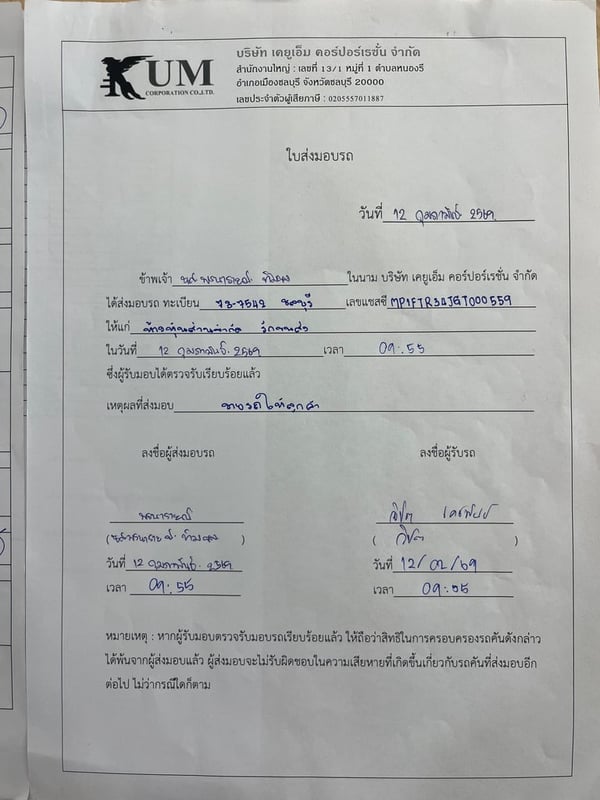 KUM
CORPORATION CO.,LTD.
บริษัท เคยูเอ็ม คอร์ปอร์เรชั่น จำกัด
สำนักงานใหญ่ : เลขที่ 13/1 หมู่ที่ 1 ตำบลหนองรี
อำเภอเมืองชลบุรี จังหวัดชลบุรี 20000
เลขประจำตัวผู้เสียภาษี : 0205557011887
ใบส่งมอบรถ
วันที่ 12 กุมภาพันธ์ 2569
ข้าพเจ้า ในนาม บริษัท เคยูเอ็ม คอร์ปอร์เรชั่น จำกัด
ได้ส่งมอบรถ ทะเบียน 73-7542 ชลบุรี เลขแชสซี MP1FTR34JGT000559
ให้แก่ ห้างหุ้นส่วนจำกัด
ในวันที่ 12 กุมภาพันธ์ 2569 เวลา 09:55
ซึ่งผู้รับมอบได้ตรวจรับเรียบร้อยแล้ว
เหตุผลที่ส่งมอบ ขายรถให้ลูกค้า
ลงชื่อผู้ส่งมอบรถ ลงชื่อผู้รับรถ
วันที่ 12 กุมภาพันธ์ 2569 วันที่ 12/02/69
เวลา 09:55 เวลา 09:55
หมายเหตุ : หากผู้รับมอบตรวจรับมอบรถเรียบร้อยแล้ว ให้ถือว่าสิทธิในการครอบครองรถคันดังกล่าว
ได้พ้นจากผู้ส่งมอบแล้ว ผู้ส่งมอบจะไม่รับผิดชอบในความเสียหายที่เกิดขึ้นเกี่ยวกับรถคันที่ส่งมอบอีก
ต่อไป ไม่ว่ากรณีใดก็ตาม